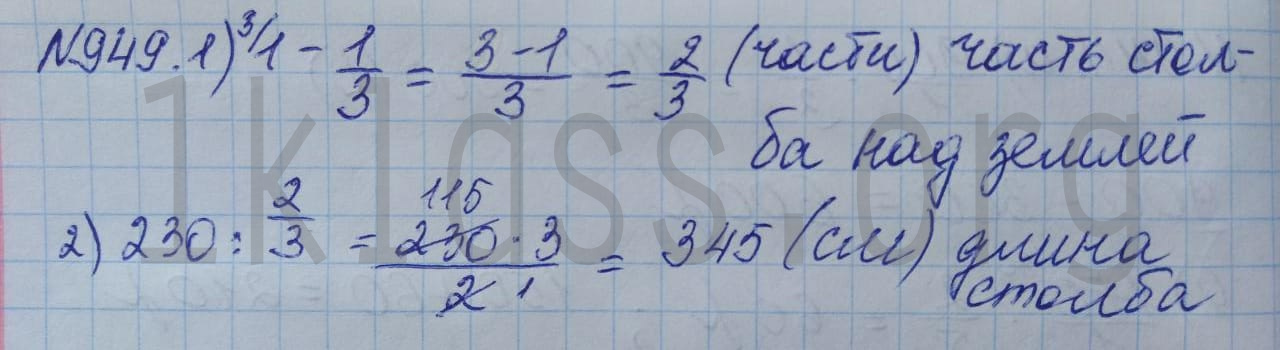 №949. 1) ³/1 - 1/3 = 3-1/3 = 2/3 (части) часть стол-
ба над землей
2) 230 : 2/3 = 115 230·3/2 1 = 345 (см) длина
столба
1klass.org